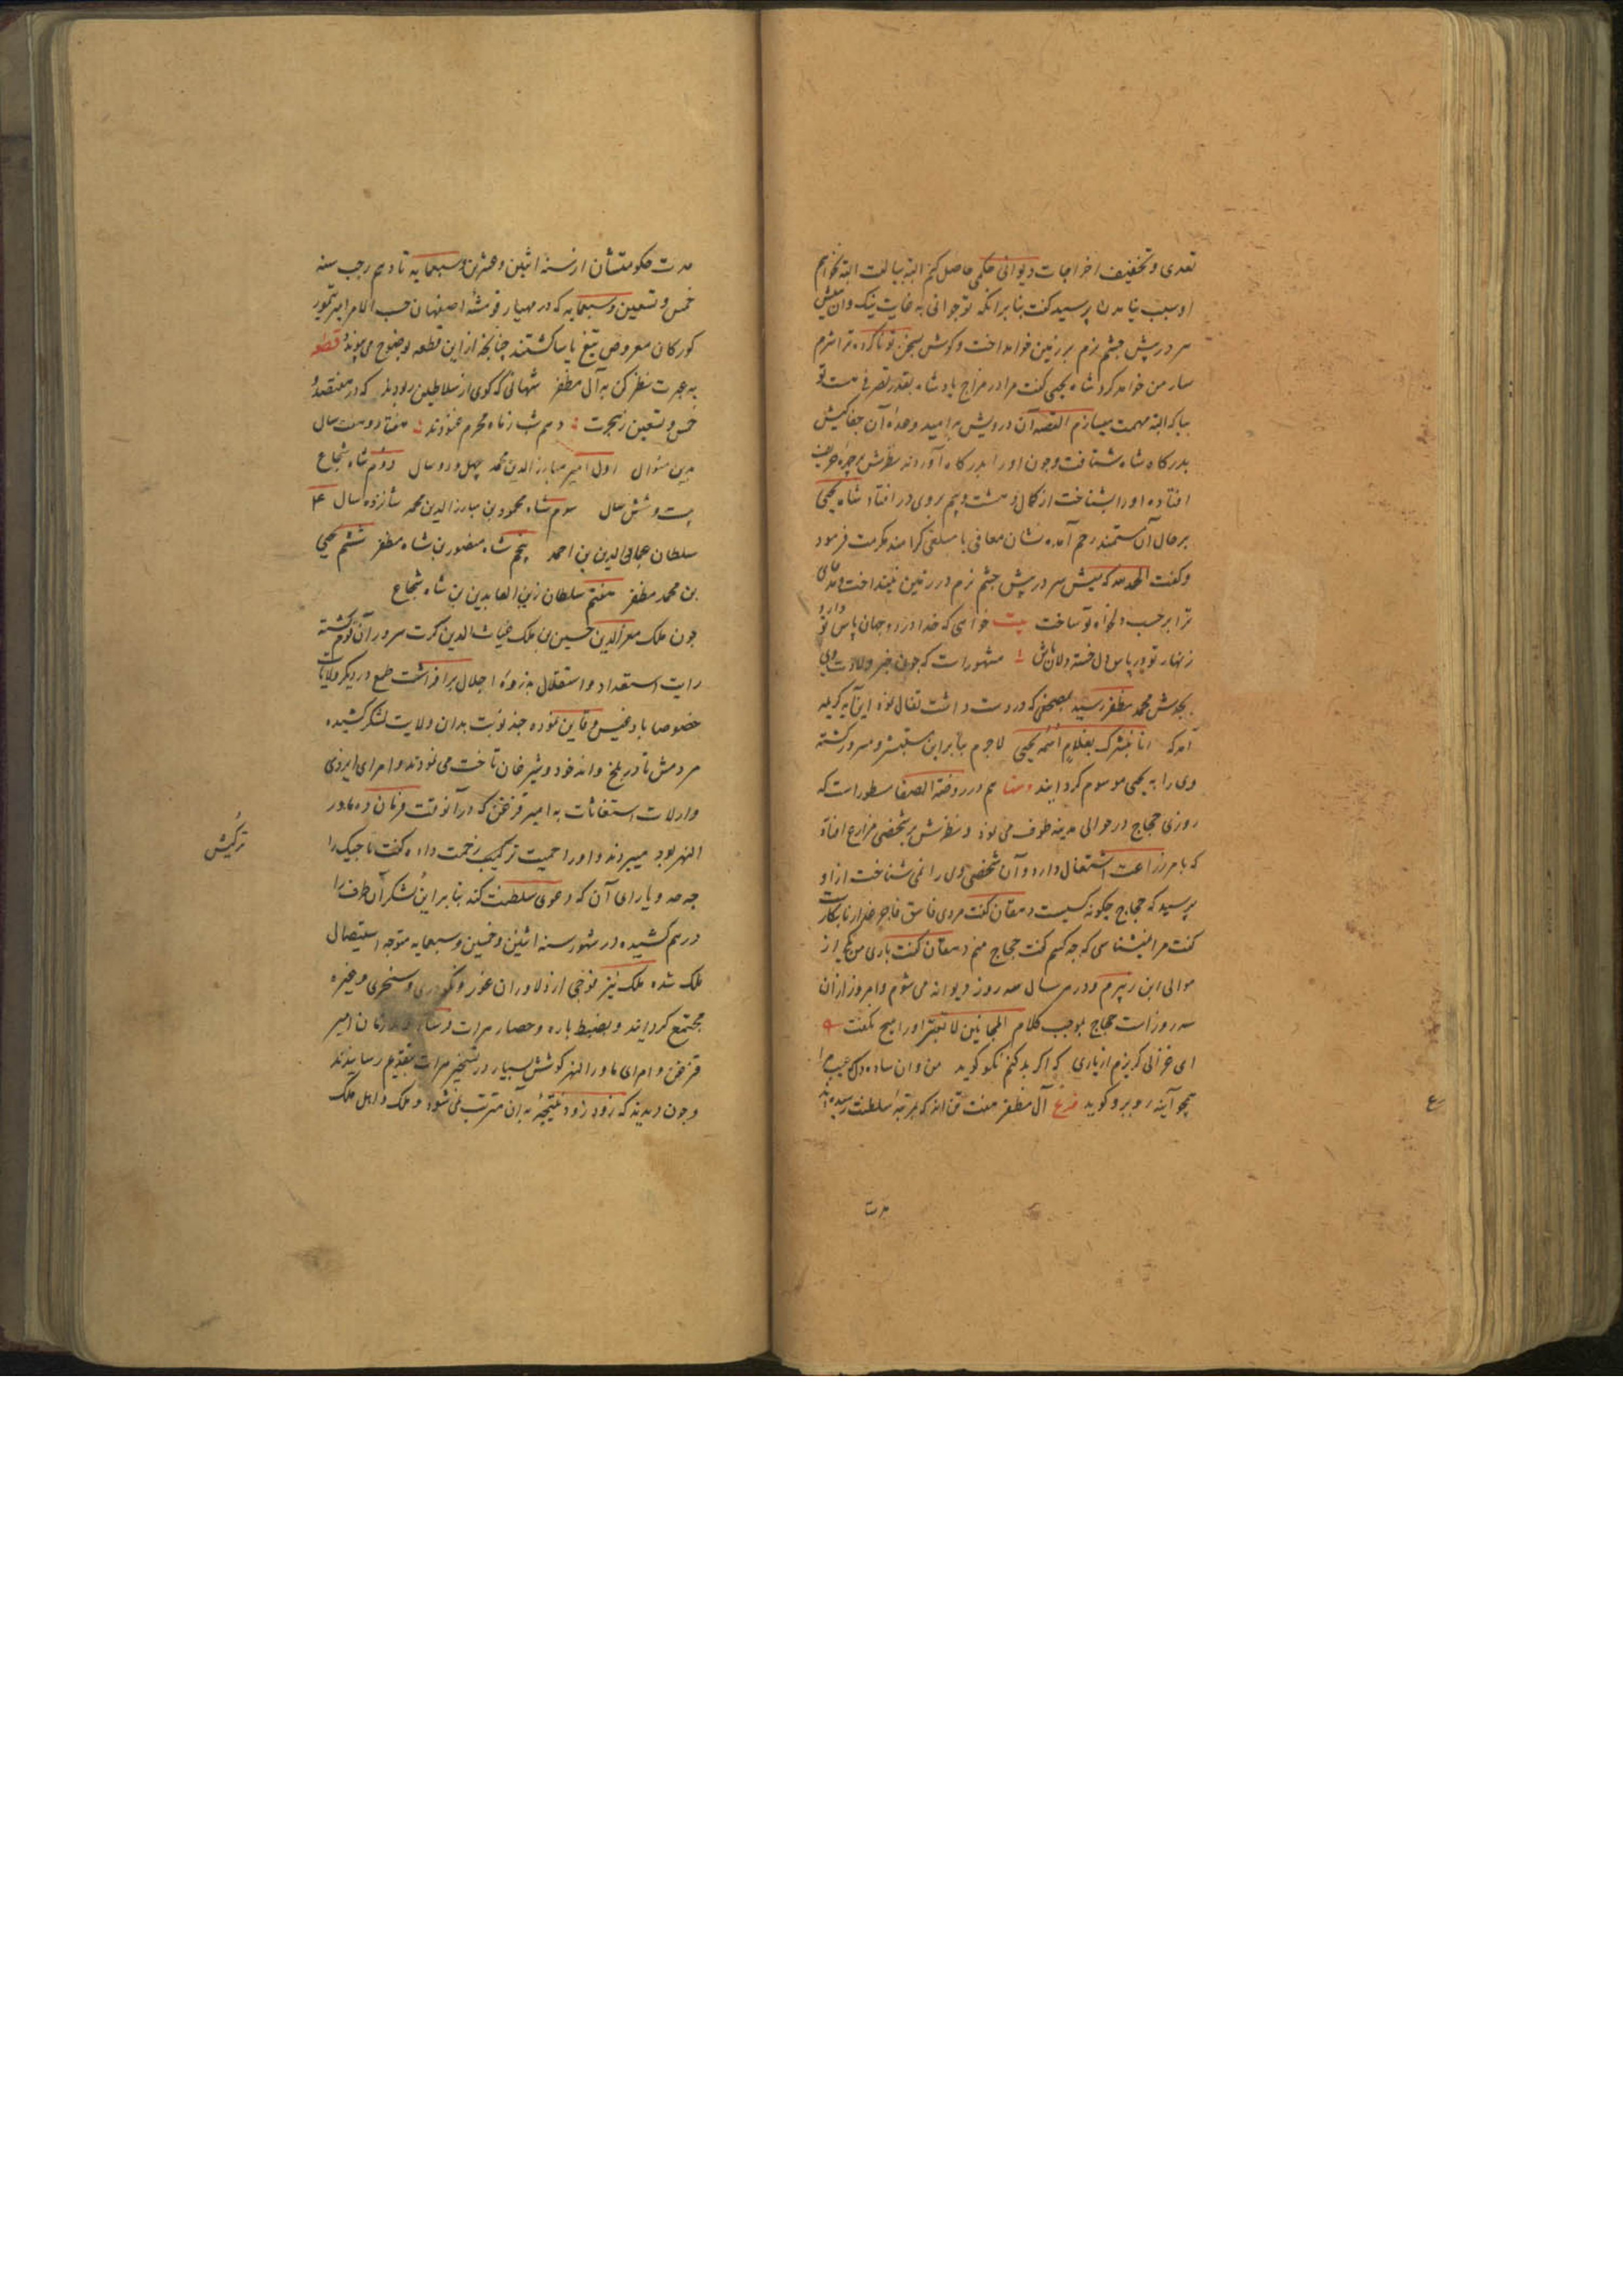 تعدی و تخفیف اخراجات دیوانی حکمی حاصل کنم البته البته
او سبب پرسید گفت بنابر آنکه تو جوانی به غایت نیک و آن
سر در پیش چشم نرم بر زمین خواهد انداخت و گوش بسخن تو ناکرده ترا شرم
سار من خواهد کرد شاه یحیی گفت مرا در مزاج پادشاه بقدر تصرفی هست تو
بیا که البته مهمت میسازم القصه آن درویش به امید وعدهٔ آن
بدرگاه شاه شتافت و چون او را بدرگاه آوردند نظرش بر چهره
افتاده او را بشناخت از کمال دهشت و بیم بروی در افتاد شاه یحیی
بر حال آن مستمند رحم آمده نشان معافی با مبلغی کرامند مکرمت فرمود
و گفت الحمد لله که سر در پیش چشم نرم در زمین نینداخت
ترا بر حسب دلخواه تو ساخت بیت خواهی که خدا در دو جهان پاس تو دارد
زنهار تو در پاس دل خسته دلان باش مشهور است که چون خبر ولادت وی
بگوش محمد مظفر رسید مصحفی که در دست داشت تفال نمود این آیه کریمه
آمد که انا نبشرک بغلام اسمه یحیی لاجرم بنابر این مستبشر و مسرور گشته
وی را به یحیی موسوم گردانید هم در روضة الصفا مسطور است که
روزی حجاج در حوالی مدینه طوف می نمود و نظرش بر شخصی مزارع افتاد
که بامر زراعت اشتغال دارد و آن شخص وی را نمی شناخت از او
پرسید که حجاج چگونه کسیست دهقان گفت مردی فاسق فاجر غدار نابکار
گفت مرا میشناسی که چه کسم گفت حجاج منم دهقان گفت باری من یکی از
موالی ابن زبیرم و در هر سال سه روز دیوانه می شوم و امروز از آن
سه روز است حجاج بموجب کلام المجانین لا تعتبر او را هیچ نگفت
ای غزالی گریزم از یاری که اگر بد کنم نکو گوید من و آن ساده دل که عیب مرا
همچو آینه روبرو گوید فرع آل مظفر هفت تن اند که بمرتبهٔ سلطنت رسیده اند
مدت
ع
مدت حکومتشان از سنه اثنین و عشرین و سبعمایه تا دهم رجب سنه
خمس و تسعین و سبعمایه که در مهیار قومشهٔ اصفهان حسب الامر امیر تیمور
کورکان معروض تیغ یاسا گشتند چنانچه از این قطعه بوضوح می پیوندد قطعه
به عبرت نظر کن به آل مظفر شهانی که گوی از سلاطین ربودند که در هفتصد و
خمس و تسعین ز هجرت دهم شب ز ماه محرم غنودند هفتاد و هشت سال
بدین منوال اول امیر مبارز الدین محمد چهل و دو سال دوم شاه شجاع
بیست و شش سال سوم شاه محمود بن مبارز الدین محمد شانزده سال ۴
سلطان عماد الدین بن احمد پنجم شاه منصور بن شاه مظفر ششم یحیی
بن محمد مظفر هفتم سلطان زین العابدین بن شاه شجاع
چون ملک معز الدین حسین بن ملک غیاث الدین کرت سرور آن قوم گشته
رایت استعداد و استقلال به ذروهٔ اجلال بر افراشت طمع در دیگر ولایات
خصوصا بادغیس و قاین نموده چند نوبت بدان ولایت لشکر کشیده
مردمش تا در بلخ و اندخود و شبرخان تاخت می نمودند و امرای
وارلات استغاثات به امیر قزغن که در آنوقت فرمان ده ماور
النهر بود میبردند و او را حمیت ترکیت رخصت داده گفت تاجیک را
چه حد و یارای آن که دعوی سلطنت کند بنابر این لشکر آن طرف را
درهم کشیده در شهور سنه اثنین و خمسین و سبعمایه متوجه استیصال
ملک شده ملک نیز فوجی از دلاوران غور و نکودری و سنجری و غیره
مجتمع گردانید و بضبط باره و حصار هرات امیر
قزغن و امرای ماورالنهر کوشش بسیار در تسخیر هرات بتقدیم رسانیدند
و چون دیدند که زود زود نتیجهٔ به آن مترتب نمی شود و ملک و اهل ملک